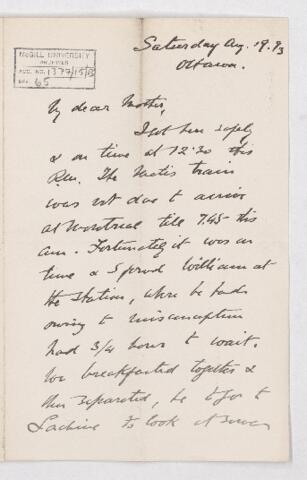 McGILL UNIVERSITY
ARCHIVES
ACC. NO. 1377/15/13
REF. 65
Saturday Aug. 19. 93
Ottawa.
My dear Mother,
I got here safely
& on time at 12.30 this
P.m. The Metis train
was not due to arrive
at Montreal till 7.45 this
am. Fortunately it was on
time & I found William at
the Station, where he had
owing to misconception
had 3/4 hours to wait.
We breakfasted together &
then separated, he to go to
Lachine to look at